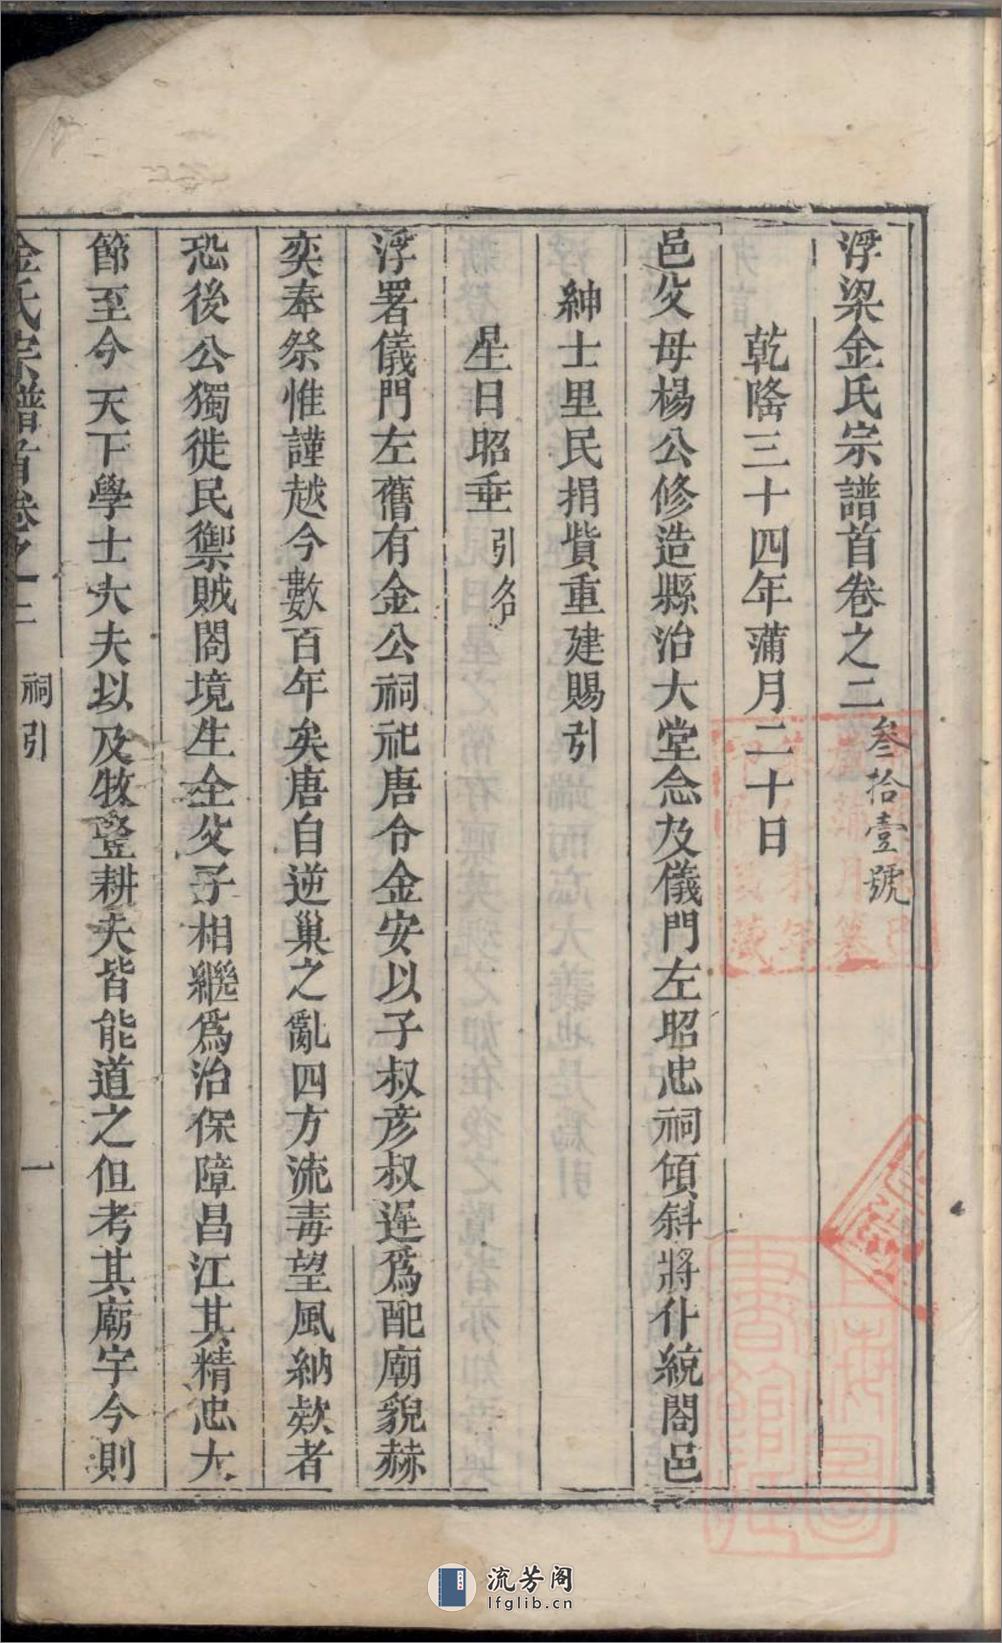 浮梁金氏宗譜首卷之二 叁拾壹號
乾隆三十四年蒲月二十日
邑父母楊公修造縣治大堂念及儀門左昭忠祠傾斜將仆統閤邑
紳士里民捐貲重建賜引
星日昭垂 引名
浮署儀門左舊有金公祠祀唐令金安以子叔彥叔遲爲配廟貌赫
奕奉祭惟謹越今數百年矣唐自逆巢之亂四方流毒望風納欵者
恐後公獨徙民禦賊閤境生全父子相繼爲治保障昌江其精忠大
節至今天下學士大夫以及牧豎耕夫皆能道之但考其廟宇今則
金氏宗譜首卷之二 祠引 一
流芳阁
lfglib.cn